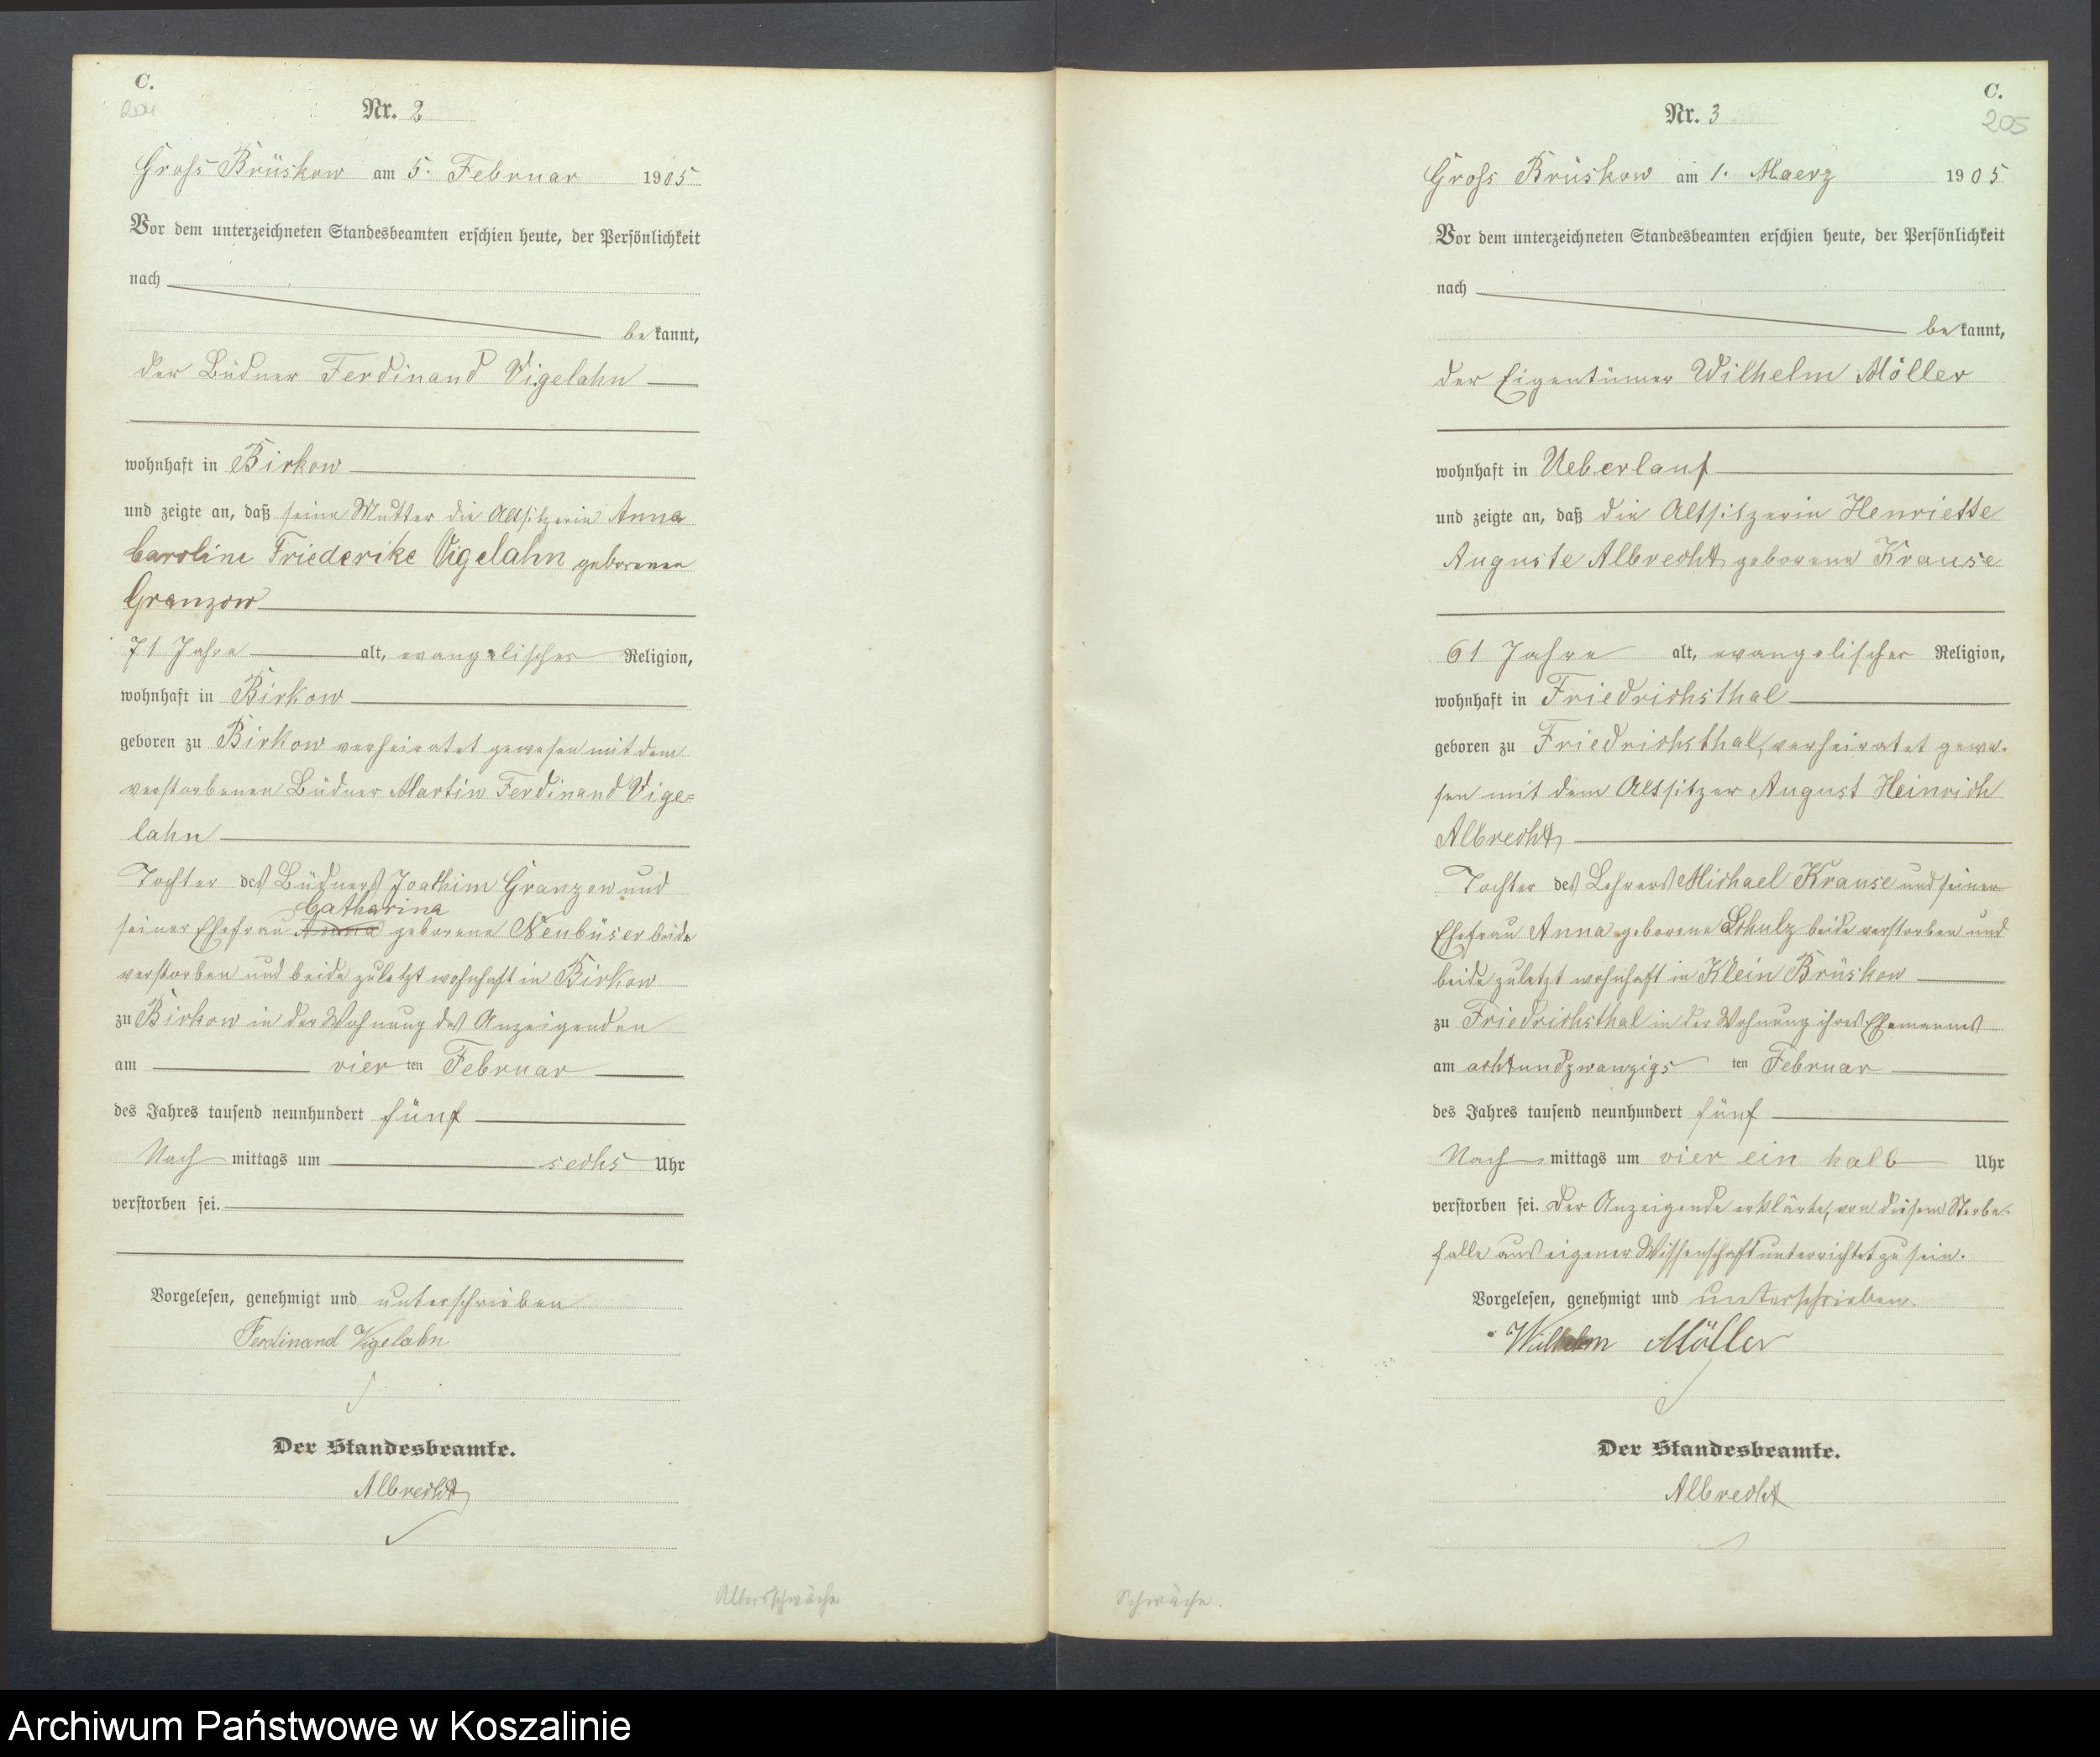 C.
204
Nr. 2
Groß Brüskow am 5. Februar 1905
Vor dem unterzeichneten Standesbeamten erschien heute, der Persönlichkeit
nach
bekannt,
der Büdner Ferdinand Vigelahn
wohnhaft in Birkow
und zeigte an, daß seine Mutter die Altsitzerin Anna
Caroline Friederike Vigelahn geborenen
Granzow
71 Jahre alt, evangelischer Religion,
wohnhaft in Birkow
geboren zu Birkow verheiratet gewesen mit dem
verstorbenen Büdner Martin Ferdinand Vige=
lahn
Tochter des Büdners Joachim Granzow und
Catharina
seiner Ehefrau Anna geborene Neubüser beide
verstorben und beide zuletzt wohnhaft in Birkow
zu Birkow in der Wohnung des Anzeigenden
am vier ten Februar
des Jahres tausend neunhundert fünf
Nach mittags um sechs Uhr
verstorben sei.
Vorgelesen, genehmigt und unterschrieben
Ferdinand Vigelahn
Der Standesbeamte.
Albrecht
Altersschwäche
C.
205
Nr. 3
Groß Brüskow am 1. Maerz 1905
Vor dem unterzeichneten Standesbeamten erschien heute, der Persönlichkeit
nach
bekannt,
der Eigentümer Wilhelm Möller
wohnhaft in Ueberlauf
und zeigte an, daß die Altsitzerin Henriette
Auguste Albrecht geborene Krause
61 Jahre alt, evangelischer Religion,
wohnhaft in Friedrichsthal
geboren zu Friedrichsthal, verheiratet gewe-
sen mit dem Altsitzer August Heinrich
Albrecht
Tochter des Lehrers Michael Krause und seiner
Ehefrau Anna geborene Schulz beide verstorben und
beide zuletzt wohnhaft in Klein Brüskow
zu Friedrichsthal in der Wohnung ihres Ehemannes
am achtundzwanzigs ten Februar
des Jahres tausend neunhundert fünf
Nach mittags um vier ein halb Uhr
verstorben sei. Der Anzeigende erklärte, von diesem Sterbe-
falle aus eigener Wissenschaft unterrichtet zu sein.
Vorgelesen, genehmigt und unterschrieben.
Wilhelm Möller
Der Standesbeamte.
Albrecht
Schwäche.
Archiwum Państwowe w Koszalinie